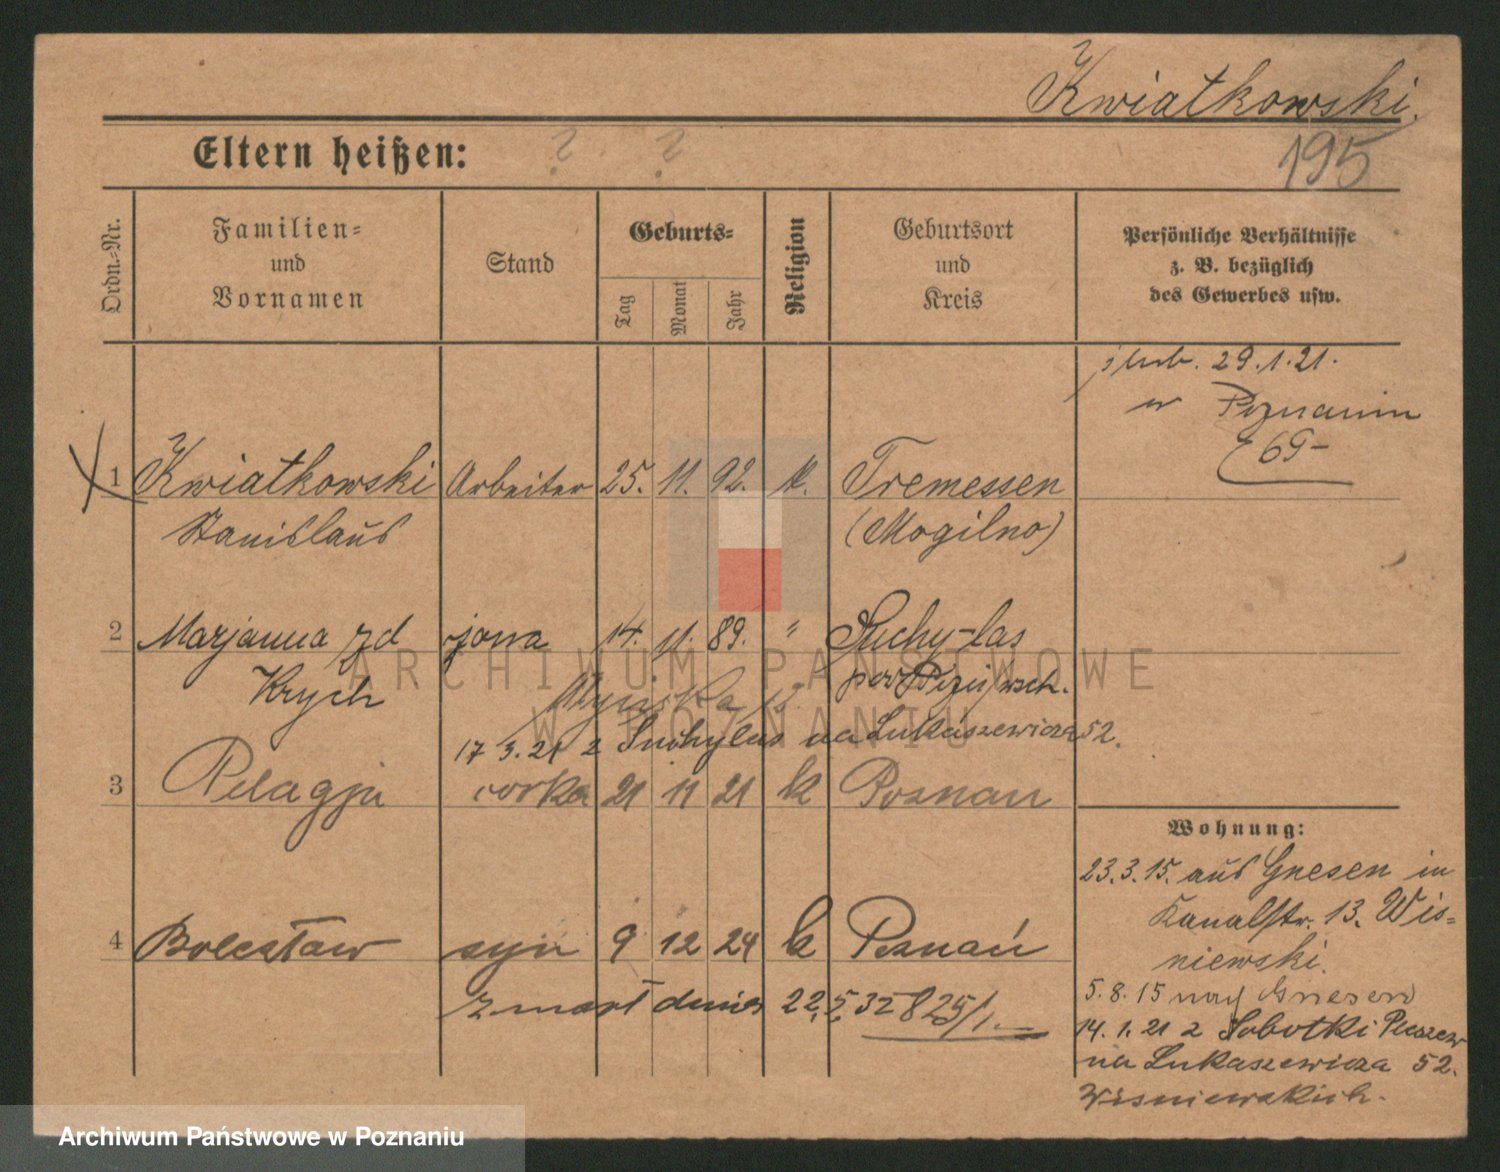 Kwiatkowski.
195
Eltern heißen: ? . ?
Ordn.-Nr.
Familien-
und
Vornamen
Stand
Geburts-
Tag
Monat
Jahr
Religion
Geburtsort
und
Kreis
Persönliche Verhältnisse
z. B. bezüglich
des Gewerbes usw.
ślub. 29.1.21.
w Poznaniu
E 69-
1 Kwiatkowski Arbeiter 25. 11. 92. k. Tremessen
Stanislaus (Mogilno)
2 Marjanna zd żona 14. 11. 89. " Suchy-las
Krych pow Pozn.
17 3. 21 z Suchylas na Łukaszewicza 52.
3 Pelagja córka 21 11 21 k Poznań
4 Bolesław syn 9 12 24 k Poznań
zmarł dnia 22,5,32 825/1.
Wohnung:
23.3.15. aus Gnesen in
Kanalstr. 13. Wis=
niewski.
5.8.15 nach Gnesen
14.1.21 z Sobotki Pleszew
na Łukaszewicza 52.
Wiśniewskich.
ARCHIWUM PAŃSTWOWE
W POZNANIU
Archiwum Państwowe w Poznaniu